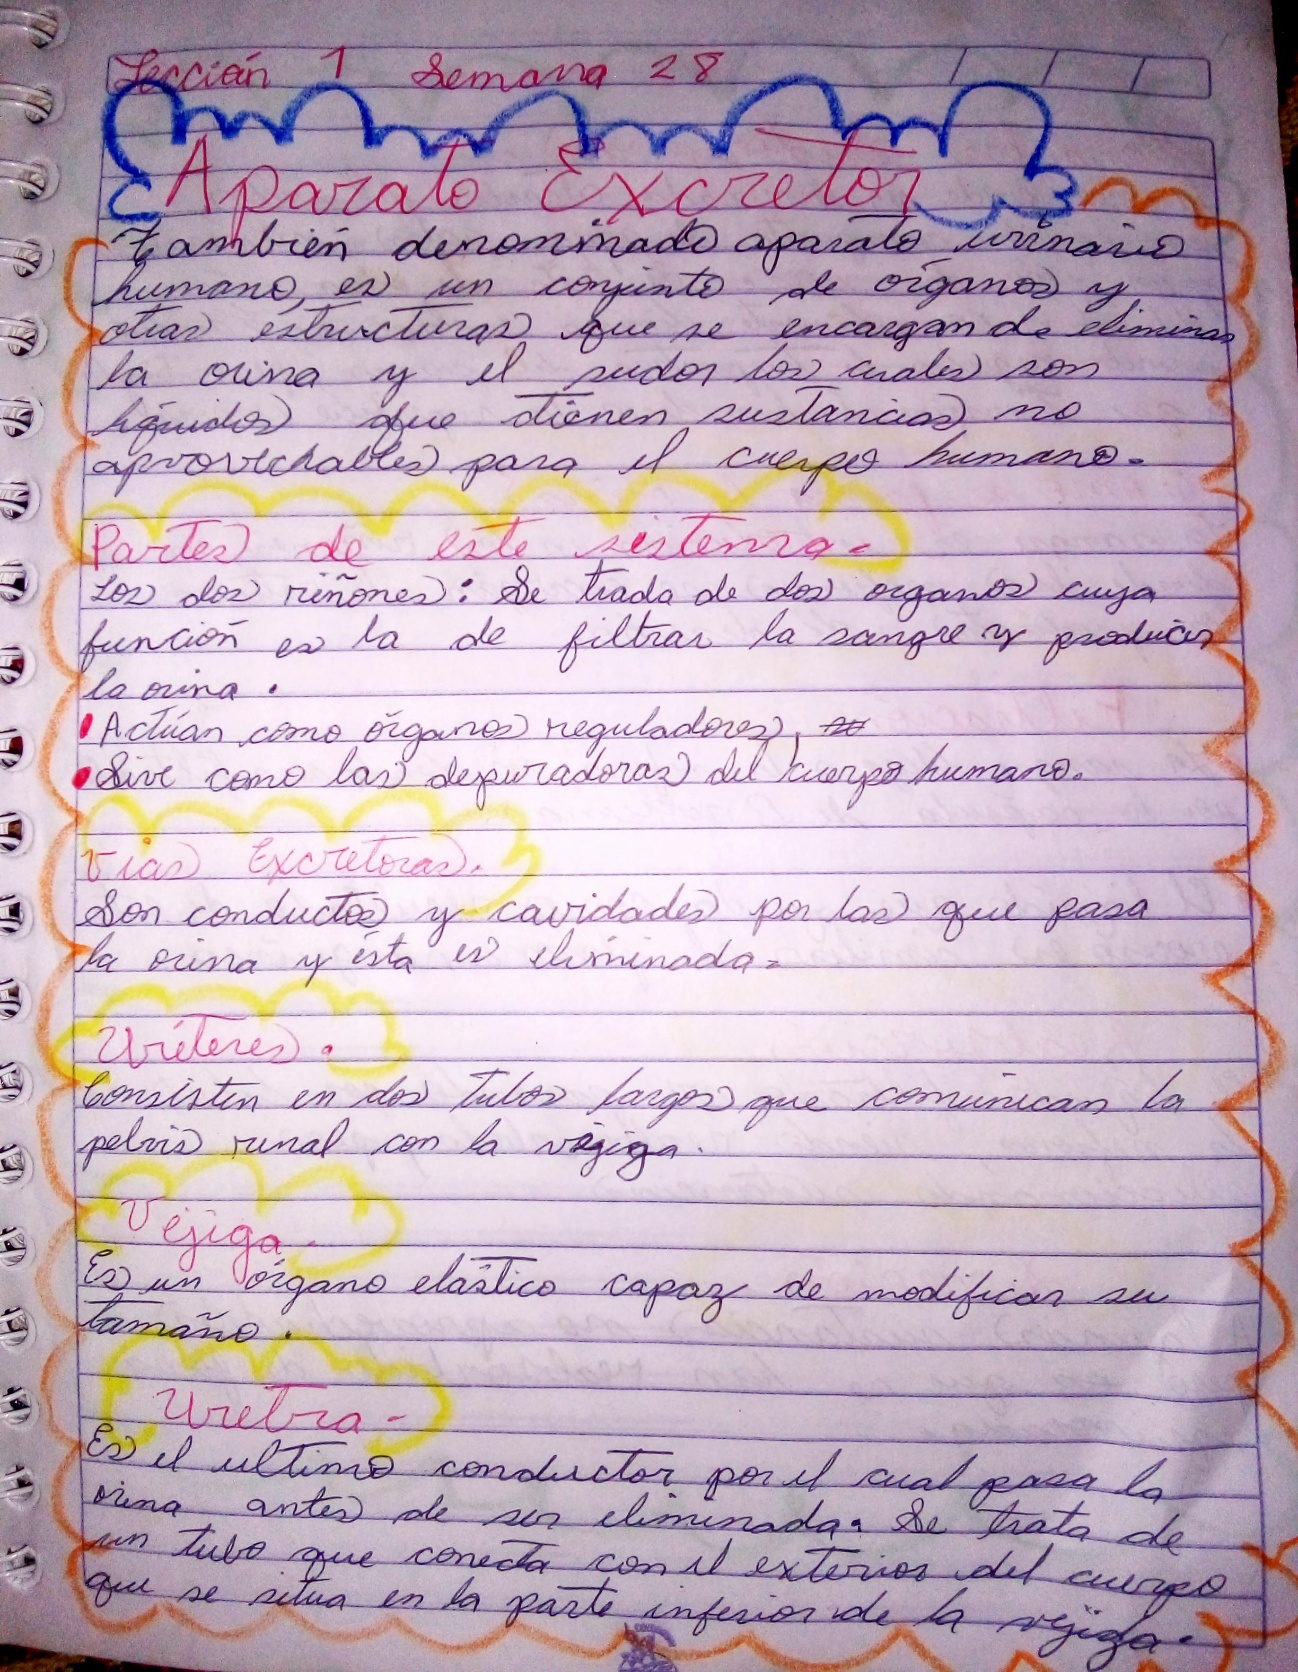 Lección 1 Semana 28
Aparato Excretor
También denominado aparato urinario
humano, es un conjunto de órganos y
otras estructuras que se encargan de eliminar
la orina y el sudor los cuales son
líquidos que tienen sustancias no
aprovechables para el cuerpo humano.
Partes de este sistema.
Los dos riñones: Se trada de dos organos cuya
función es la de filtrar la sangre y producir
la orina.
• Actúan como órganos reguladores,
• Sive como las depuradoras del cuerpo humano.
Vias Excretoras.
Son conductos y cavidades por las que pasa
la orina y ésta es eliminada.
Uréteres.
Consisten en dos tubos largos que comunican la
pelvis runal con la vejiga.
Vejiga.
Es un órgano elástico capaz de modificar su
tamaño.
Uretra.
Es el ultimo conductor por el cual pasa la
orina antes de ser eliminada. Se trata de
un tubo que conecta con el exterior del cuerpo
que se situa en la parte inferior de la vejiga.